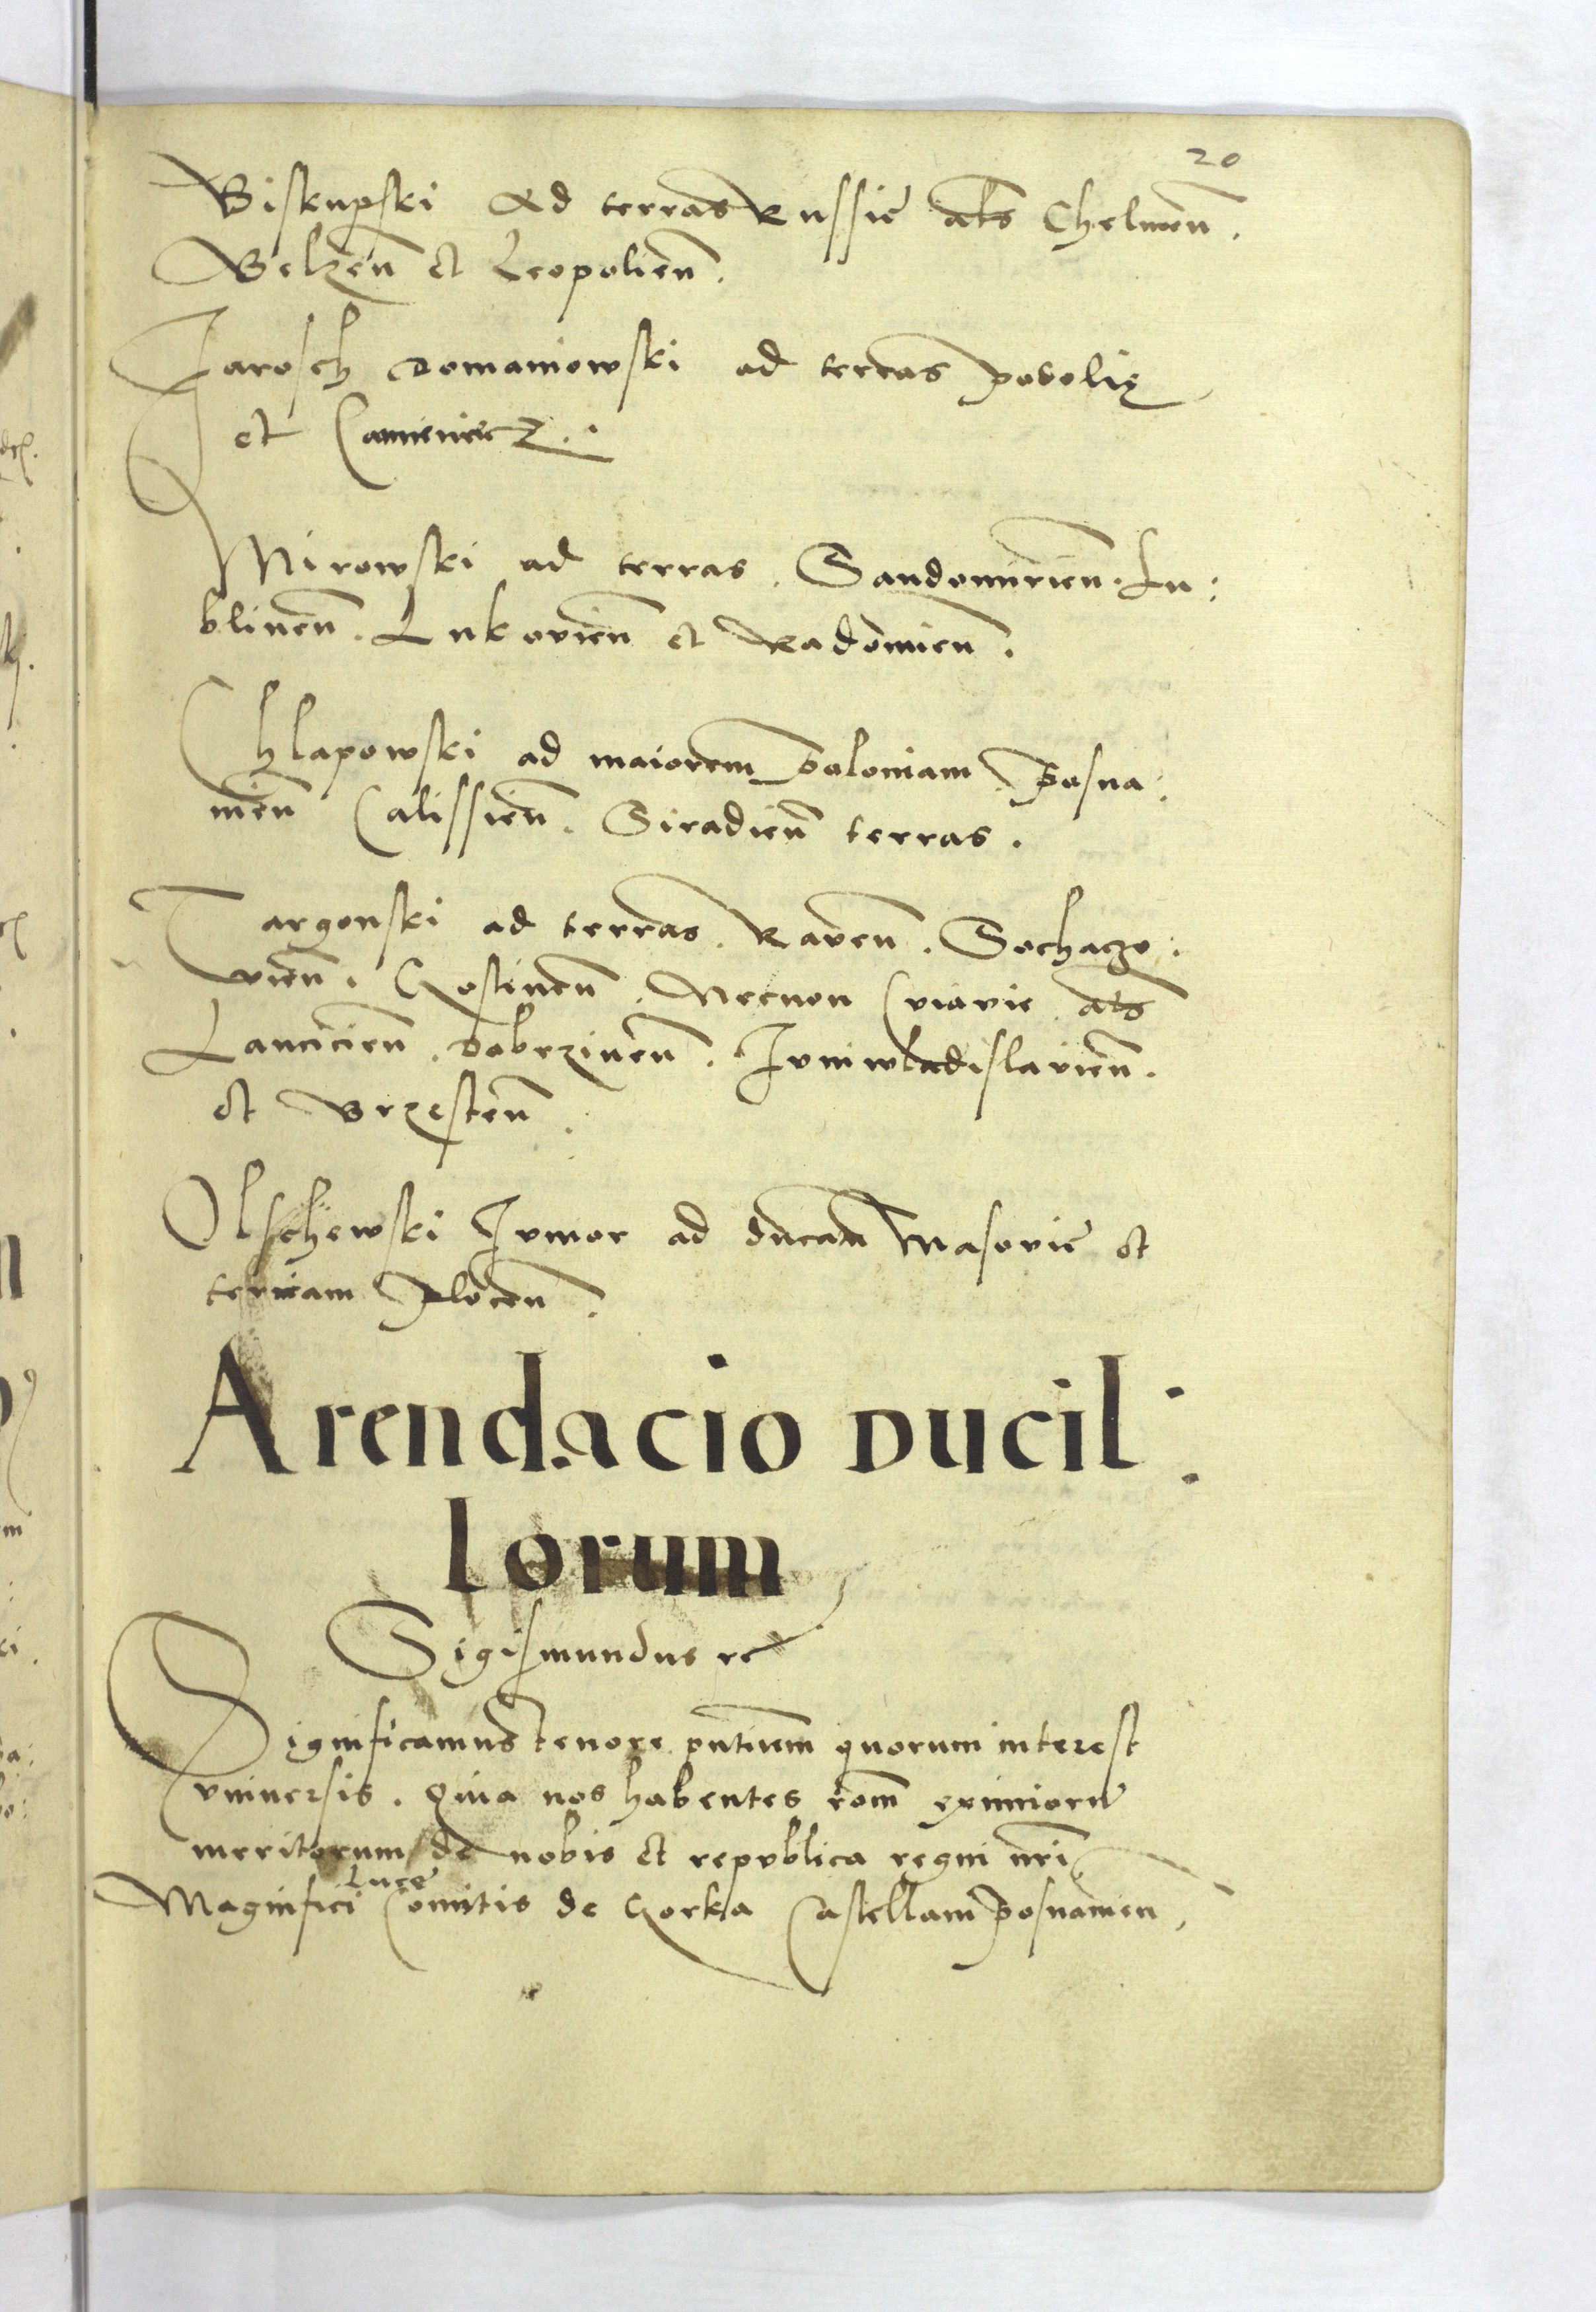 20
Biskupski Ad terras Russie als Chelmen̄.
Belzen̄ et Leopolien̄.
Jarosch Domaniowski ad terras podolię
et Camieniecz.
Mirowski ad terras. Sandomirien̄. Lu:
blinen̄. Lukovien̄ et Radomien̄.
Chlapowski ad maiorem Poloniam. Posna:
nien̄ Calissien̄. Siradien̄ terras.
Targonski ad terras. Raven̄. Sochacze:
vien̄. Gostinen̄. Necnon Cuiavie. als
Lancicien̄. Dobrzinen̄. Iuniwladislavien̄.
et Brzesten̄.
Olschewski Iunior ad ducatū Masovie et
terram Plocen̄.
Arendacio Ducil:
lorum
Sigismundus re
Significamus tenore pn̄tium quorum interest
vniversis. Quia nos habentes rōm eximiorū
meritorum de nobis et republica regni nr̄i
Luce
Magnifici Comitis de Gorka Castellani Posnanien̄.